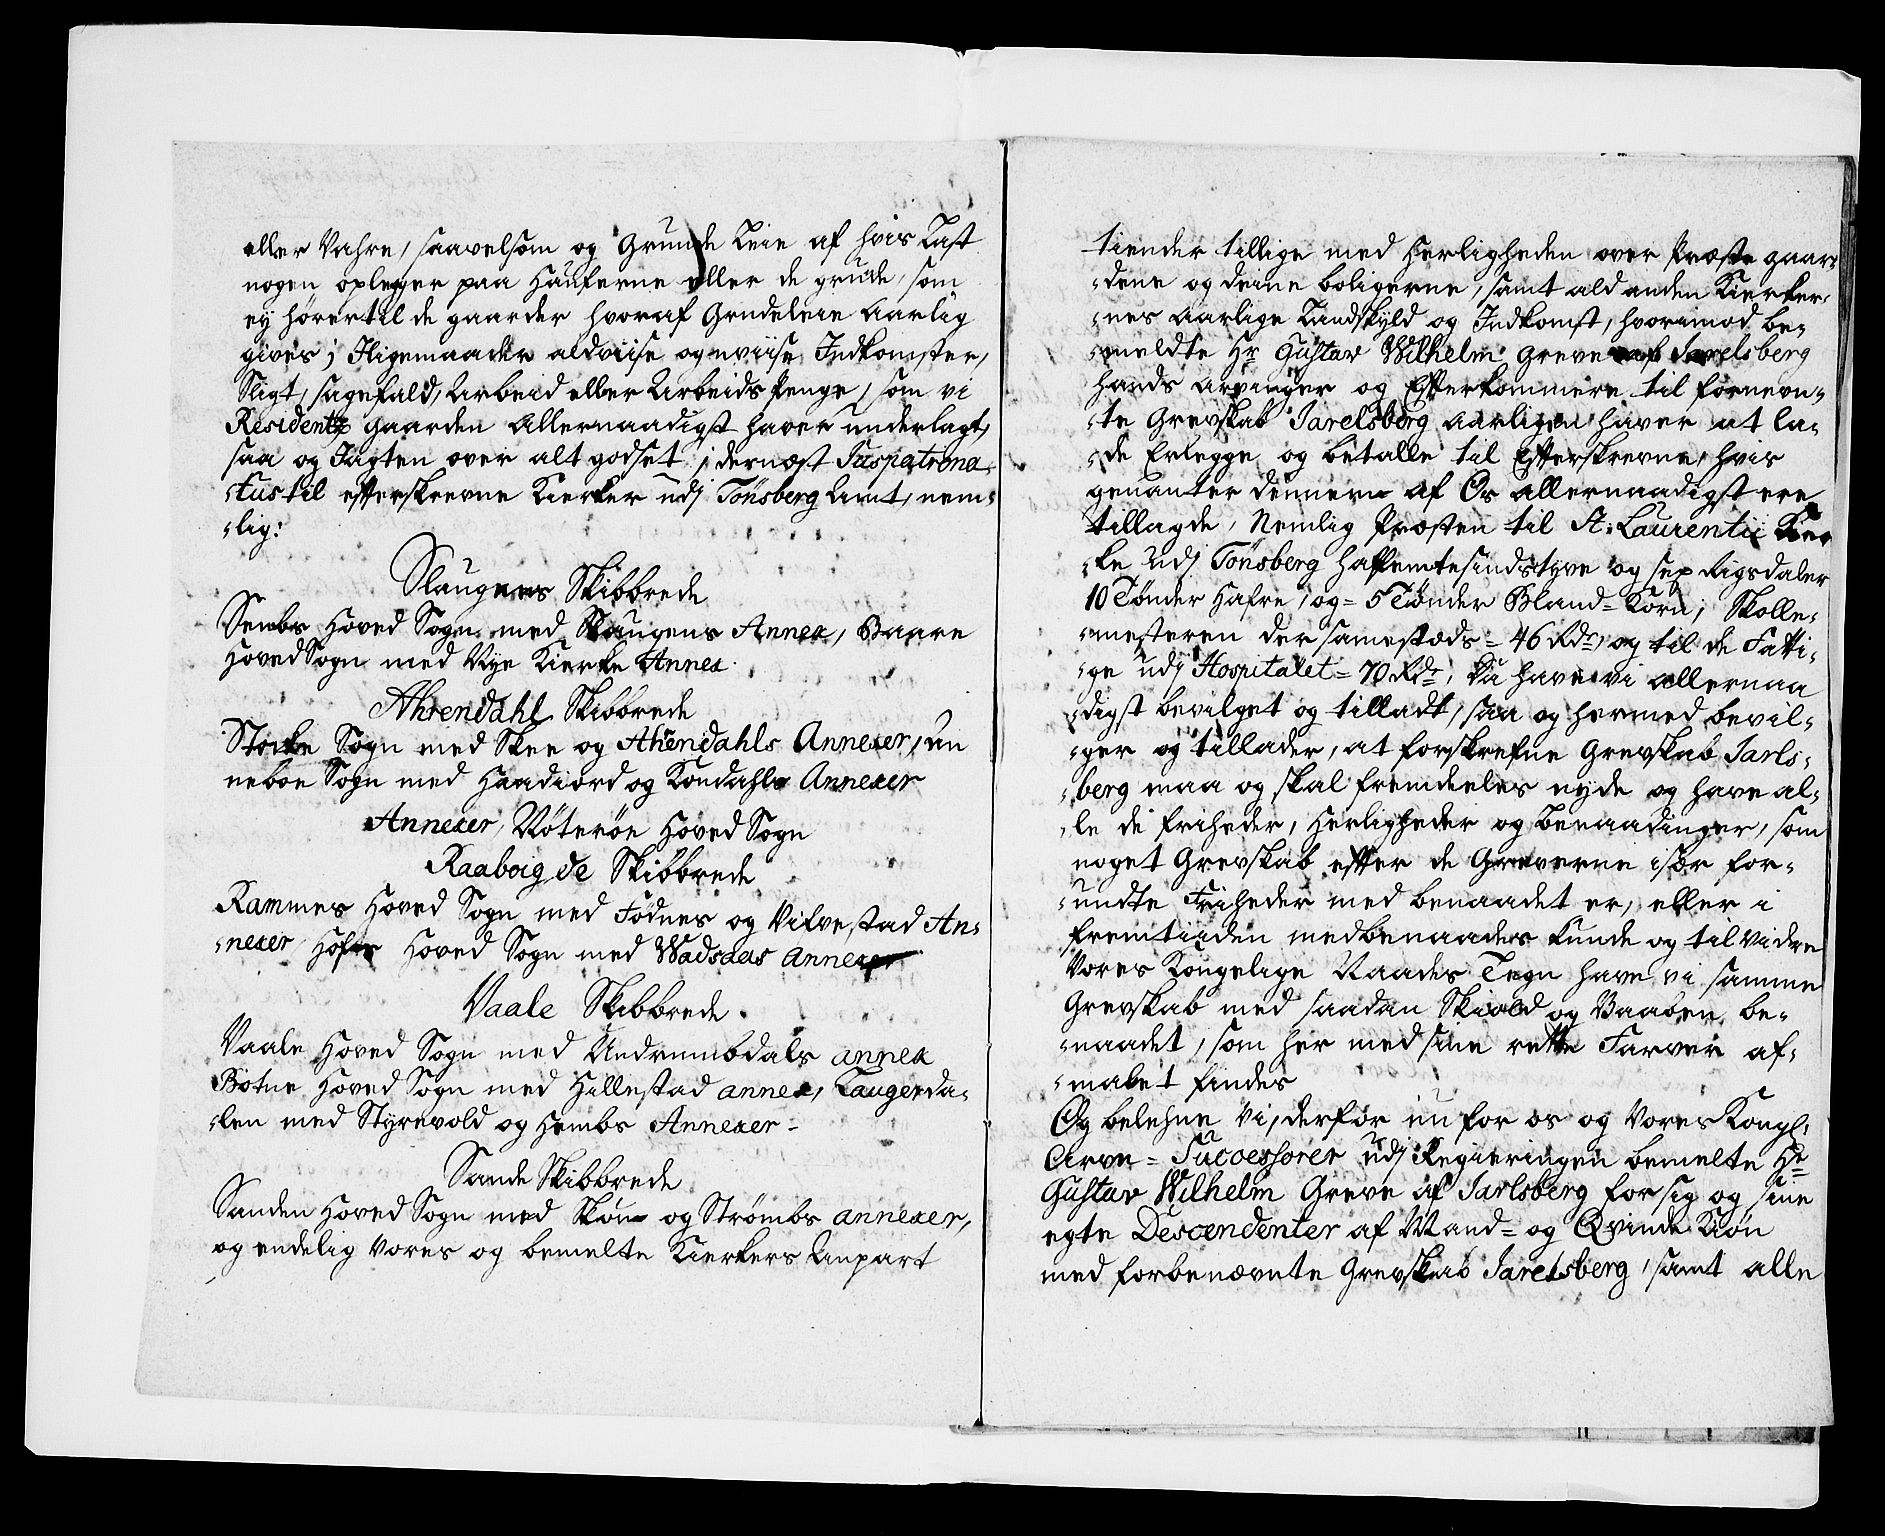 eller Vahre, saavelsom og Grunde Leie af hvis Last
nogen opleger paa Hauferne eller de grude, som
ey hörer til de gaarder hvoraf Grudeleie Aarlig
gives; Iligemaader aldviise og uviise Indkomster,
Sligt, sagefald, Arbeid eller Arbeids Penge, som vi
Residentz gaarden Allernaadigst haver underlagt,
saa og Jagten over alt godset; dernæst Juspatrona-
-tus til efterskrevne Kierker udj Tönsberg Amt, nem-
-lig:
Slaugnes Skibbrede
Sembs Hoved Sogn med Slaugens Annex, Baare
Hoved Sogn med Nye Kierke Annex.
Ahrendahl Skibbrede
Stocke Sogn med Skee og Ahrendahls Annexer, un
neboe Sogn med Haadiord og Kondahls Annexer
Annexer, Nöteröe Hoved Sogn
Raabojgde Skibbrede
Rammes Hoved Sogn med Födnes og Vifvestad An-
-nexer, Hofs Hoved Sogn med Wadsaas Annexer
Vaale Skibbrede
Vaale Hoved Sogn med Undrumbdals annex
Botne Hoved Sogn med Hillestad annex, Laugerda-
-len med Styrevold og Hembs Annexer-
Sande Skibbrede
Sanden Hoved Sogn med Skou og Strömbs annexer,
og endelig Vores og bemelte Kierkers Anpart
tiender tillige med Herligheden over Præste gaar-
-dene og deine boligerne, samt ald anden Kierker-
-nes Aarlige Landskyld og Indkomst, hvorimod be-
-meldte Hr Gustav Wilhelm Greve af Jarelsberg
hands arvinger og Efterkommere til fornevn-
-te Grevskab Jarelsberg aarligen haver at la-
-de Erlegge og betalle til Efterskrevne, hvis
genanter dennem af Os allernaadigst ere
tillagde, Nemlig Præsten til St. Laurentii Kier
-ke udj Tönsberg halfemtesindstyve og sex Rigsdaler
10 Tönder Hafre, og= 5 Tönder Bland=Korn; Skolle-
-mesteren der samestæds= 46 Rdr, og til de Fatti-
-ge udj Hospitalet= 70 Rdr; Saa have vi allernaa
-digst bevilget og tilladt, saa og hermed bevil-
-ger og tillader, at forskrefne Grevskab Jarls-
-berg maa og skal fremdeeles nyde og have al-
-le de friheder, Herligheder og benaadinger, som
noget Grevskab efter de Greverne især for-
-undte Friheder med benaadet er, eller i
fremtiiden medbenaades kunde og til vidre
Vores Kongelige Naades Tegn have vi samme
Grevskab med saadan Skiold og Vaaben be-
-naadet, som her med sine rette Farver af-
-malet findes
Og belehne Vi, derfor nu for os og Vores Kongl.
Arve= Successorer udj Regieringen bemelte Hr
Gustav Wilhelm Greve af Jarlsberg for sig og sine
egte Descendenter af Mand= og Qvinde Kiön
med forbenævnte Grevskab Jarelsberg, samt alle